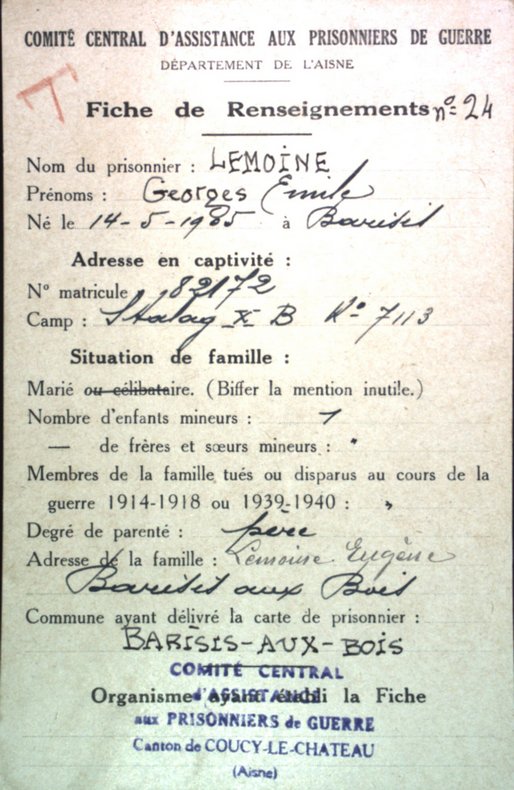 COMITÉ CENTRAL D'ASSISTANCE AUX PRISONNIERS DE GUERRE
DÉPARTEMENT DE L'AISNE
T
Fiche de Renseignements nº 24
Nom du prisonnier : LEMOINE
Prénoms : Georges Emile
Né le 14-5-1905 à Barisis
Adresse en captivité :
Nº matricule 82172
Camp : Stalag X B Kº 7113
Situation de famille :
Marié ou célibataire. (Biffer la mention inutile.)
Nombre d'enfants mineurs : 1
— de frères et sœurs mineurs : "
Membres de la famille tués ou disparus au cours de la
guerre 1914-1918 ou 1939-1940 : "
Degré de parenté : père
Adresse de la famille : Lemoine Eugène
Barisis aux Bois
Commune ayant délivré la carte de prisonnier :
BARISIS-AUX-BOIS
COMITÉ CENTRAL
Organisme ayant établi la Fiche
d'ASSISTANCE
aux PRISONNIERS de GUERRE
Canton de COUCY-LE-CHATEAU
(Aisne)